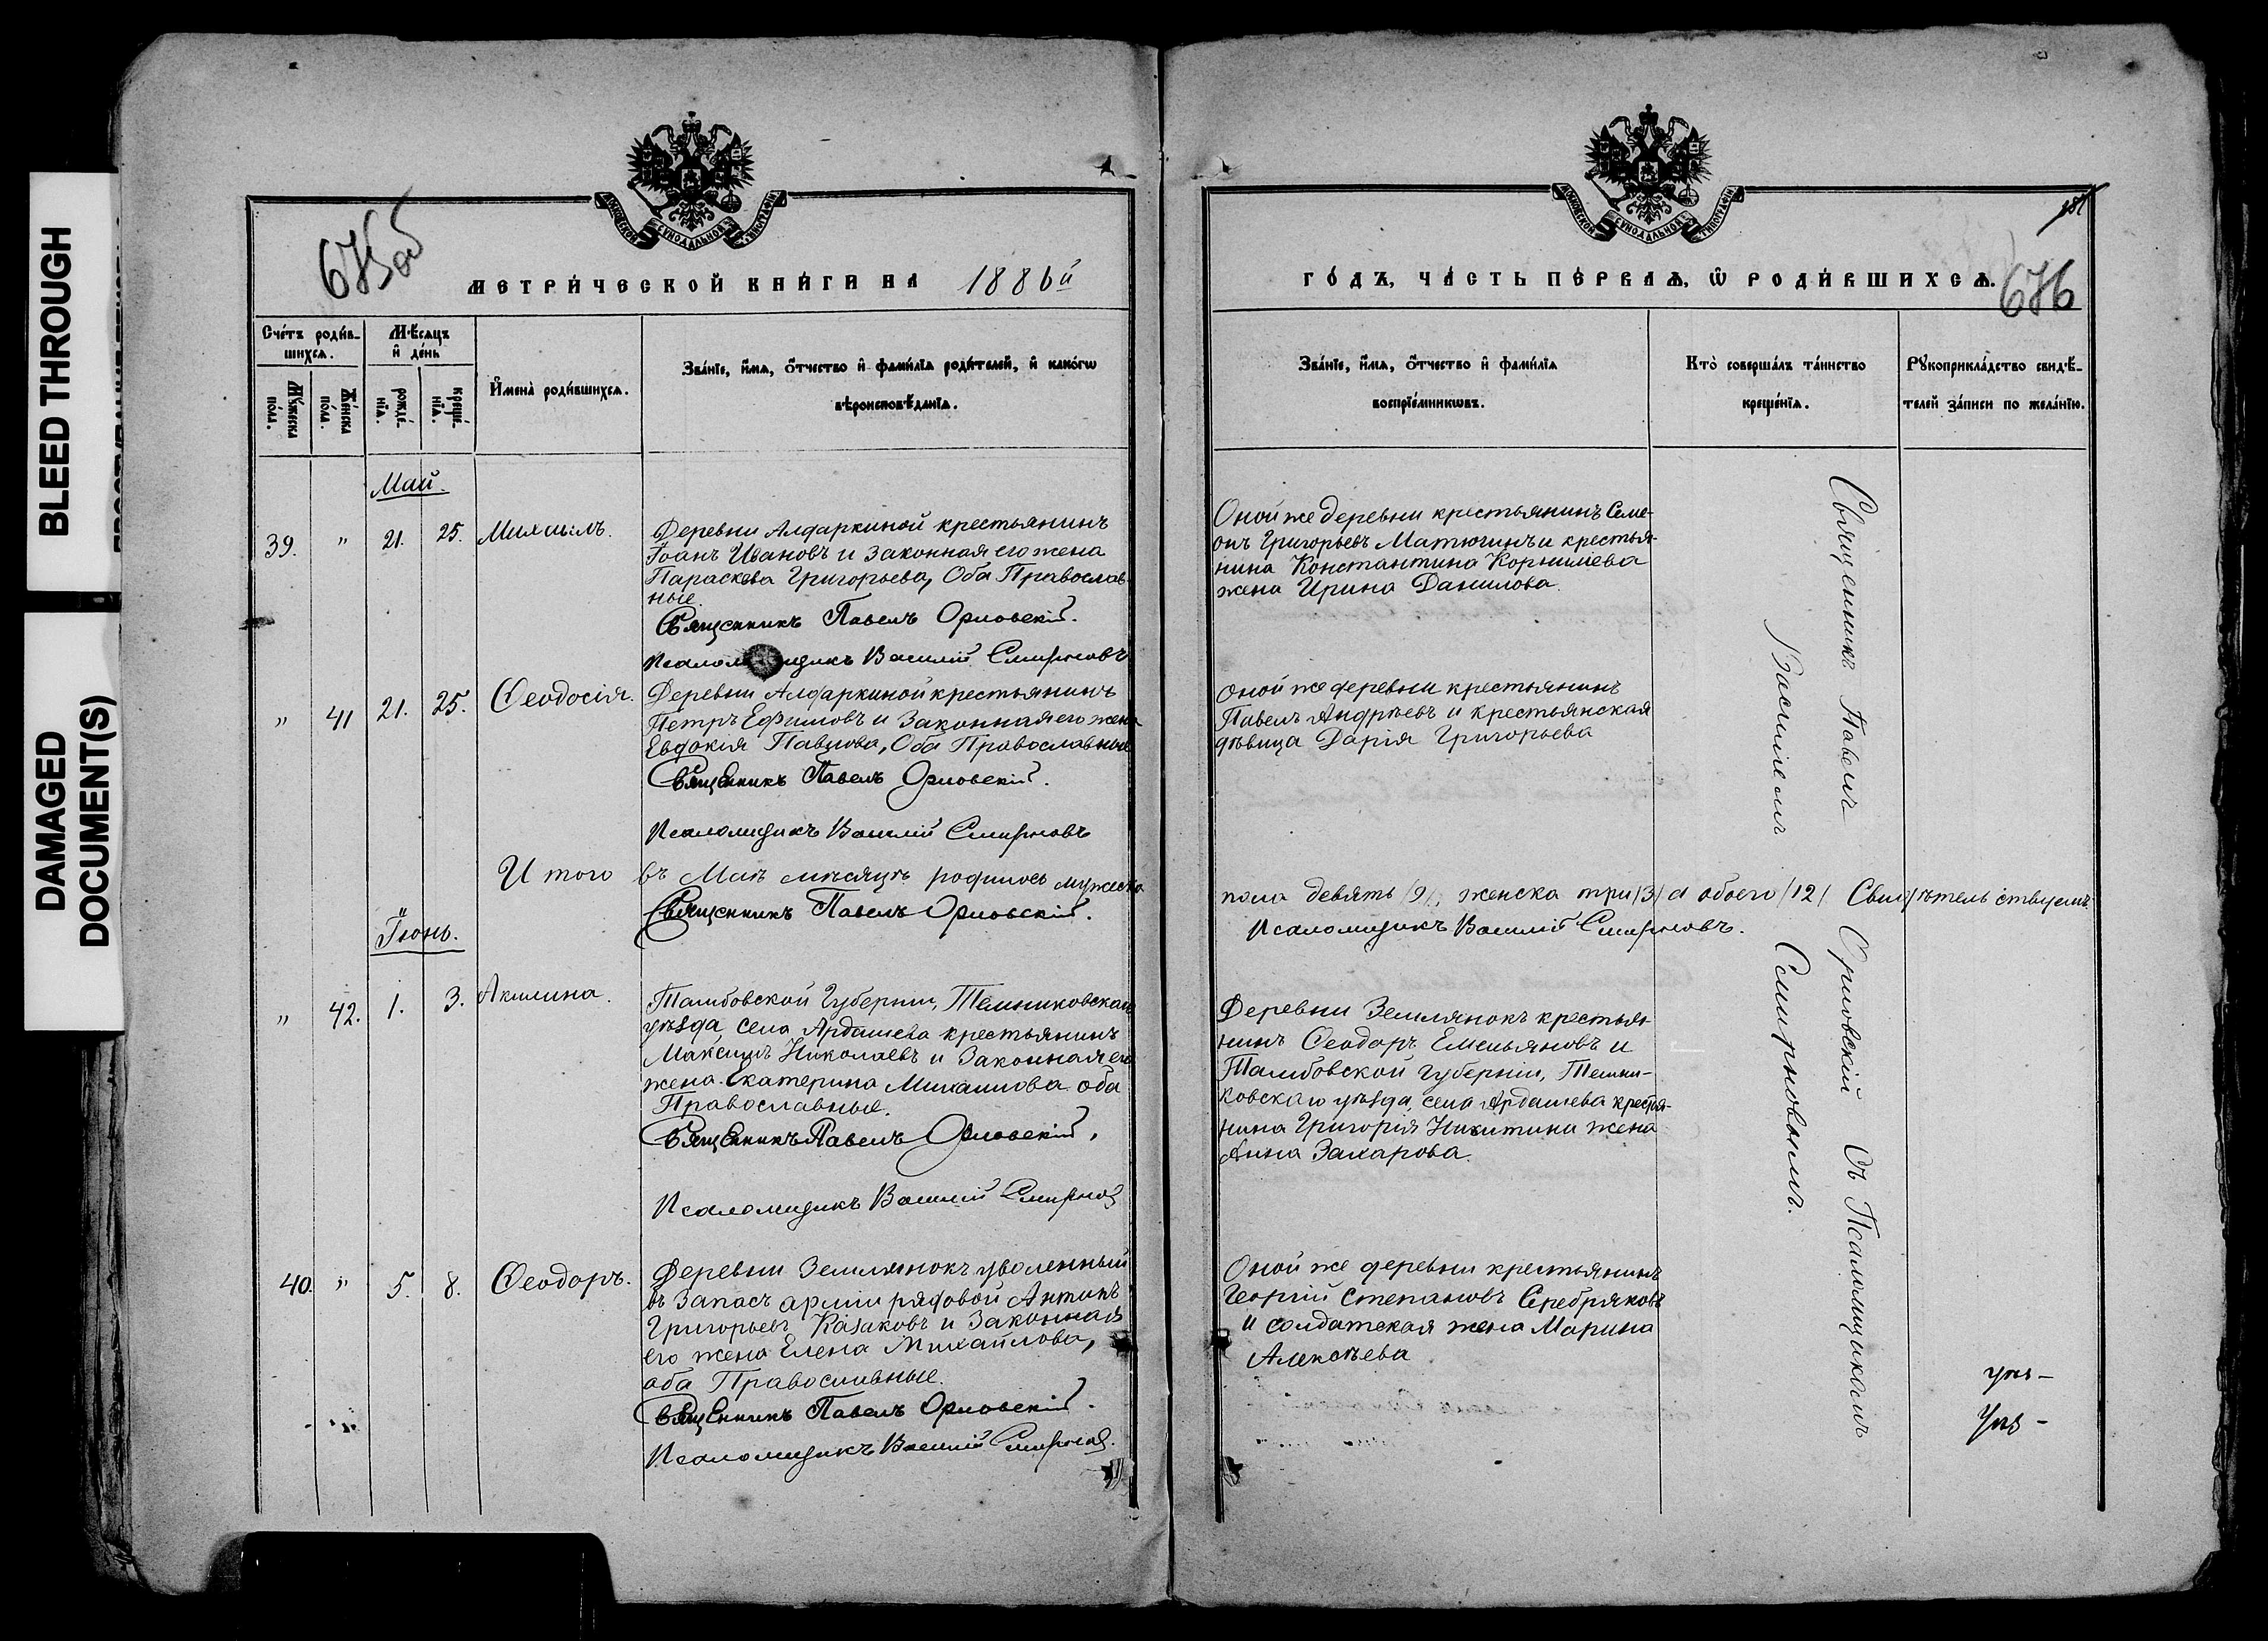 BLEED THROUGH
DAMAGED
DOCUMENT(S)
МОСКОВСКОЙ СѴНОДАЛЬНОЙ ТИПОГРАФІИ
675об
МЕТРИ́ЧЕСКОЙ КНИ́ГИ НА 1886й
Сче́тъ роди́в-
шихсѧ.
Мѣ́сѧцъ
и҆ де́нь
Мꙋ́жеска
по́ла.
Же́нска
по́ла.
рожде́-
нїѧ.
креще́-
нїѧ.
И҆мена̀ роди́вшихсѧ.
Зва́нїе, и҆́мѧ, ѻ҆́тчество и҆ фами́лїѧ роди́телей, и҆ како́гѡ
вѣроисповѣ́данїѧ.
Май.
39. " 21. 25. Михаилъ.
Деревни Алдаркиной крестьянинъ
Іоанъ Ивановъ и законная его жена
Параскева Григорьева, Оба Православ-
ные.
Священникъ Павелъ Орловскій.
Псаломщикъ Василій Смирновъ
" 41 21. 25. Ѳеодосія.
Деревни Алдаркиной крестьянинъ
Петръ Ефимовъ и Законная его жена
Евдокія Павлова, Оба Православные
Священникъ Павелъ Орловскій.
Псаломщикъ Василій Смирновъ
Итого въ Маѣ мѣсяцѣ родилось мужеска
Священникъ Павелъ Орловскій.
Іюнь.
" 42. 1. 3. Акилина.
Тамбовской Губерніи, Темниковскаго
уѣзда, села Ардашева крестьянинъ
Максимъ Николаевъ и Законная его
жена Екатерина Михаилова оба
Православные.
Священникъ Павелъ Орловскій,
Псаломщикъ Василій Смирнов
40. " 5. 8. Ѳеодоръ.
Деревни Землянокъ уволенный
въ Запасъ арміи рядовой Антипъ
Григорьевъ Казаковъ и Законная
его жена Елена Михайлова,
оба Православные.
Священникъ Павелъ Орловскій.
Псаломщикъ Василій Смирнов.
МОСКОВСКОЙ СѴНОДАЛЬНОЙ ТИПОГРАФІИ
676
ГО́ДЪ, ЧА́СТЬ ПЕ́РВАѦ, Ѡ҆ РОДИ́ВШИХСѦ.
Зва́нїе, и҆́мѧ, ѻ҆́тчество и҆ фами́лїѧ
воспрїе́мникѡвъ.
Кто̀ соверша́лъ та́инство
креще́нїѧ.
Рꙋкоприкла́дство свидѣ́-
телей за́писи по жела́нїю.
Оной же деревни крестьянинъ Семе-
онъ Григорьевъ Матюгинъ и крестья-
нина Константина Корнилиева
жена Ирина Данилова.
Оной же деревни крестьянинъ
Павелъ Андрѣевъ и крестьянская
дѣвица Дарія Григорьева
пола девять /9/, женска три /3/ а обоего /12/ Свидѣтельствуемъ
Псаломщикъ Василій Смирновъ.
Деревни Землянокъ крестья-
нинъ Ѳеодоръ Емельяновъ и
Тамбовской губерніи, Темни-
ковскаго уѣзда, села Ардашева крестья-
нина Григорія Никитина жена
Анна Захарова.
Оной же деревни крестьянинъ
Георгій Степановъ Серебряковъ
и солдатская жена Марина
Алексѣева
Священникъ Павелъ Орловскій съ Псаломщикомъ
Василіемъ Смирновымъ.